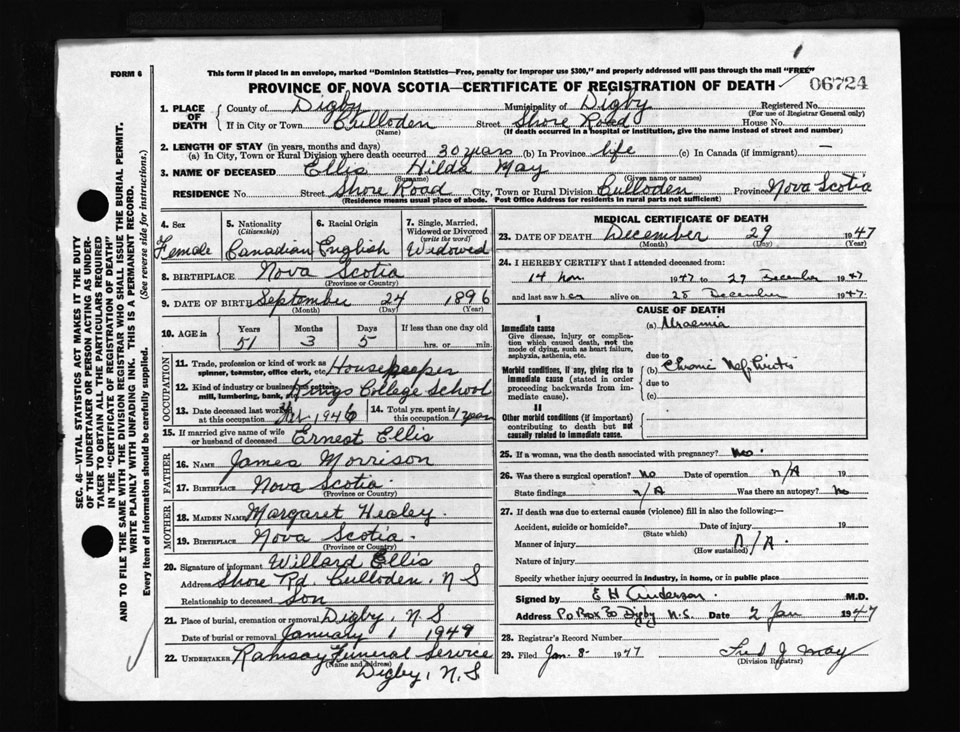 FORM 6
This form if placed in an envelope, marked "Dominion Statistics—Free, penalty for improper use $300," and properly addressed will pass through the mail "FREE"
PROVINCE OF NOVA SCOTIA—CERTIFICATE OF REGISTRATION OF DEATH
06724
1. PLACE OF DEATH
County of Digby Municipality of Digby Registered No.
(For use of Registrar General only)
If in City or Town Culloden Street Shore Road House No.
(Name) (If death occurred in a hospital or institution, give the name instead of street and number)
2. LENGTH OF STAY (in years, months and days)
(a) In City, Town or Rural Division where death occurred 30 years (b) In Province life (c) In Canada (if immigrant) —
3. NAME OF DECEASED Ellis Hilda May
(Surname) (Given name or names)
RESIDENCE No. Street Shore Road City, Town or Rural Division Culloden Province Nova Scotia
(Residence means usual place of abode. Post Office Address for residents in rural parts not sufficient)
4. Sex
Female
5. Nationality
(Citizenship)
Canadian
6. Racial Origin
English
7. Single, Married, Widowed or Divorced
(write the word)
Widowed
8. BIRTHPLACE Nova Scotia
(Province or Country)
9. DATE OF BIRTH September 24 1896
(Month) (Day) (Year)
10. AGE in
Years Months Days If less than one day old
51 3 5 hrs. or min.
OCCUPATION
11. Trade, profession or kind of work as
spinner, teamster, office clerk, etc. Housekeeper
12. Kind of industry or business, as cotton
mill, lumbering, bank, etc. Kings College School
13. Date deceased last worked
at this occupation 1946
14. Total yrs. spent in
this occupation 1 year
15. If married give name of wife
or husband of deceased Ernest Ellis
FATHER
16. NAME James Morrison
17. BIRTHPLACE Nova Scotia
(Province or Country)
MOTHER
18. MAIDEN NAME Margaret Healey.
19. BIRTHPLACE Nova Scotia.
(Province or Country)
20. Signature of informant Willard Ellis
Address Shore Rd. Culloden. N S
Relationship to deceased Son
21. Place of burial, cremation or removal Digby, N S
Date of burial or removal January 1 1949
22. UNDERTAKER Ramsay Funeral Service
(Name and Address)
Digby, N.S
MEDICAL CERTIFICATE OF DEATH
23. DATE OF DEATH December 29 1947
(Month) (Day) (Year)
24. I HEREBY CERTIFY that I attended deceased from:
14 Nov 1947 to 29 December 1947
and last saw her alive on 28 December 1947.
CAUSE OF DEATH
I
Immediate cause
Give disease, injury or complication which caused death, not the mode of dying, such as heart failure, asphyxia, asthenia, etc.
(a) Uraemia
due to
Morbid conditions, if any, giving rise to immediate cause (stated in order proceeding backwards from immediate cause).
(b) Chronic Nephritis
due to
(c)
II
Other morbid conditions (if important) contributing to death but not causally related to immediate cause.
25. If a woman, was the death associated with pregnancy? No.
26. Was there a surgical operation? No Date of operation n/A 19
State findings n/A Was there an autopsy? No
27. If death was due to external causes (violence) fill in also the following:—
Accident, suicide or homicide? Date of injury 19
(State which)
Manner of injury N/A.
(How sustained)
Nature of injury
Specify whether injury occurred in industry, in home, or in public place
Signed by E H Anderson M.D.
Address Po Box 30 Digby N.S. Date 2 Jan 1947
28. Registrar's Record Number
29. Filed Jan. 8- 1947 Fred J. May
(Division Registrar)
SEC. 46—VITAL STATISTICS ACT MAKES IT THE DUTY
OF THE UNDERTAKER OR PERSON ACTING AS UNDERTAKER
TO OBTAIN ALL THE PARTICULARS REQUIRED
IN THE "CERTIFICATE OF REGISTRATION OF DEATH"
AND TO FILE THE SAME WITH THE DIVISION REGISTRAR WHO SHALL ISSUE THE BURIAL PERMIT.
WRITE PLAINLY WITH UNFADING INK. THIS IS A PERMANENT RECORD.
Every item of information should be carefully supplied. (See reverse side for instructions.)